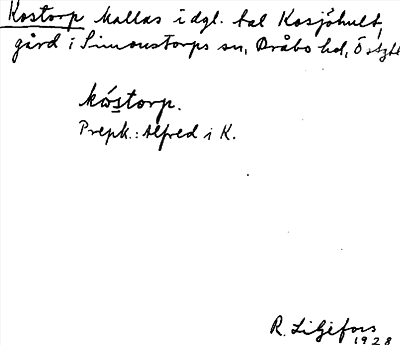 Kostorp kallas i dgl. tal Kosjöhult,
gård i Simonstorps sn, Bråbo hd, Östgtl
kóstorp.
Prepk.: Alfred i K.
R. Liljefors
1928